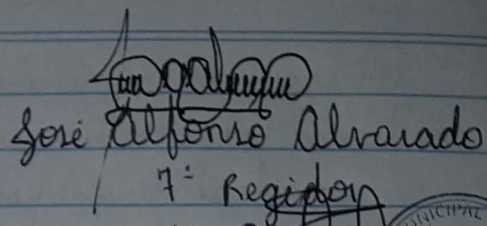 José Alfonso Alvarado
7º Regidor
NICIPAL